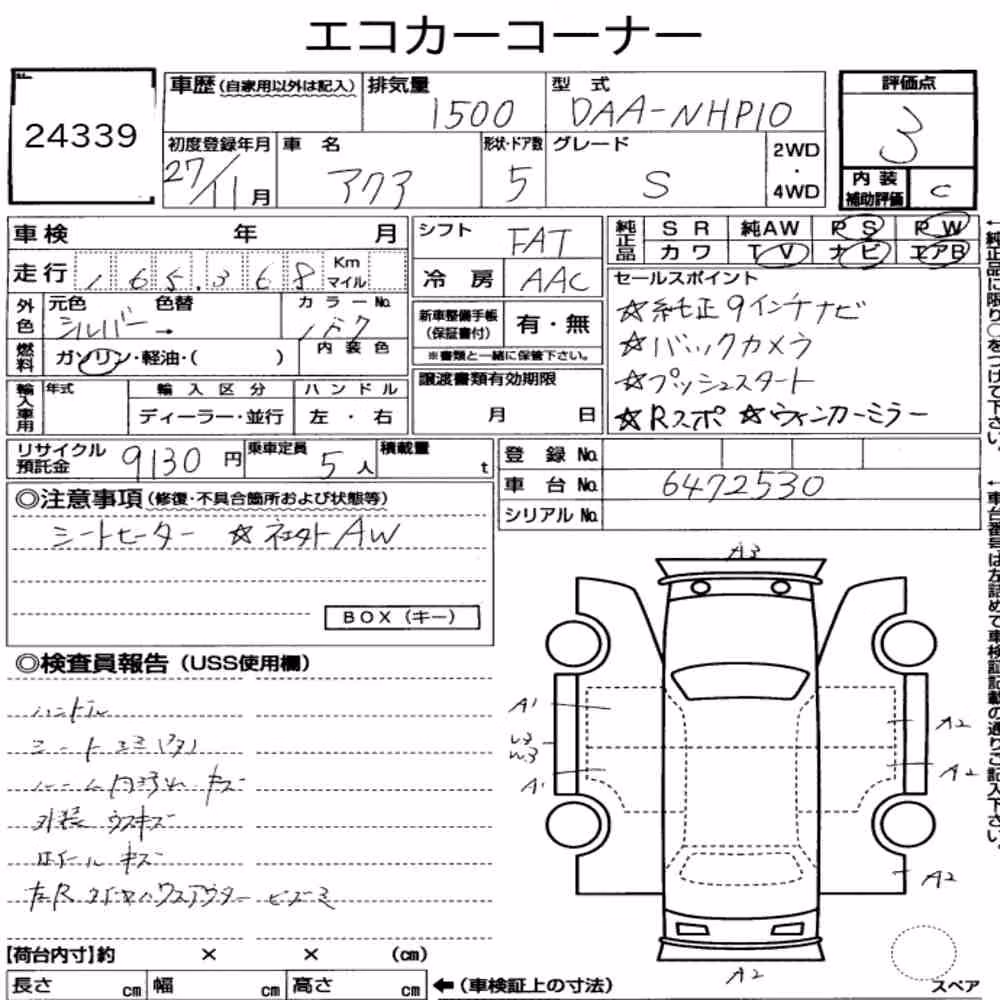 エコカーコーナー
24339
車歴（自家用以外は記入） 排気量 1500 型式 DAA-NHP10
評価点 3
初度登録年月 27/11月 車名 アクア 形状・ドア数 5 グレード S 2WD・4WD
内装補助評価 C
車検 年 月
走行 165,368 Km マイル
外色 元色 シルバー → 色替 カラーNo. 1F7
燃料 ガソリン・軽油・( ) 内装色
輸入車用 年式 輸入区分 ディーラー・並行 ハンドル 左・右
シフト FAT
冷房 AAC
新車整備手帳（保証書付） 有・無
※書類と一緒に保管下さい。
譲渡書類有効期限
月 日
純正品 SR 純AW PS PW
カワ TV ナビ エアB
セールスポイント
☆純正9インチナビ
☆バックカメラ
☆プッシュスタート
☆Rスポ ☆ウィンカーミラー
←純正品に限り○をつけて下さい。
リサイクル預託金 9130円 乗車定員 5人 積載量 t
登録No.
車台No. 6472530
シリアルNo.
←車台番号は左詰めで車検証記載の通りご記入下さい。
◎注意事項（修復・不具合箇所および状態等）
シートヒーター ☆ AW
BOX（キー）
◎検査員報告（USS使用欄）
ハンドル
シート
ルーム内汚れ キズ
外装 ウスキズ
ホイール キズ
左R インナーハウスアウター ヒズミ
A3
A1
U3
W3
A1
A2
A2
A2
A2
スペア
【荷台内寸】約 × × （cm）
長さ cm 幅 cm 高さ cm ←（車検証上の寸法）